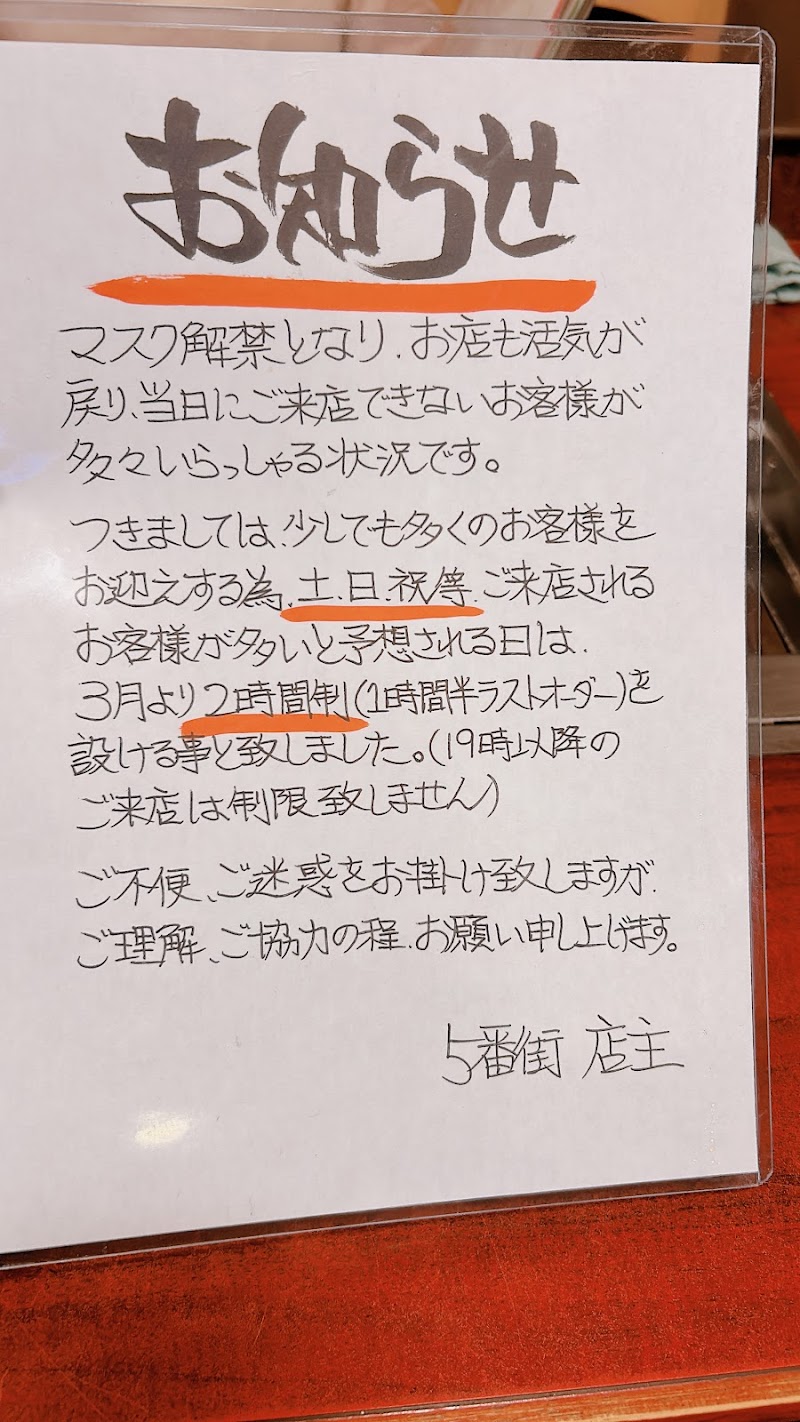 お知らせ
マスク解禁となり、お店も活気が
戻り、当日にご来店できないお客様が
多々いらっしゃる状況です。
つきましては、少しでも多くのお客様を
お迎えする為、土、日、祝等、ご来店される
お客様が多いと予想される日は、
3月より2時間制(1時間半ラストオーダー)を
設ける事と致しました。(19時以降の
ご来店は制限致しません)
ご不便、ご迷惑をお掛け致しますが、
ご理解、ご協力の程、お願い申し上げます。
5番街 店主